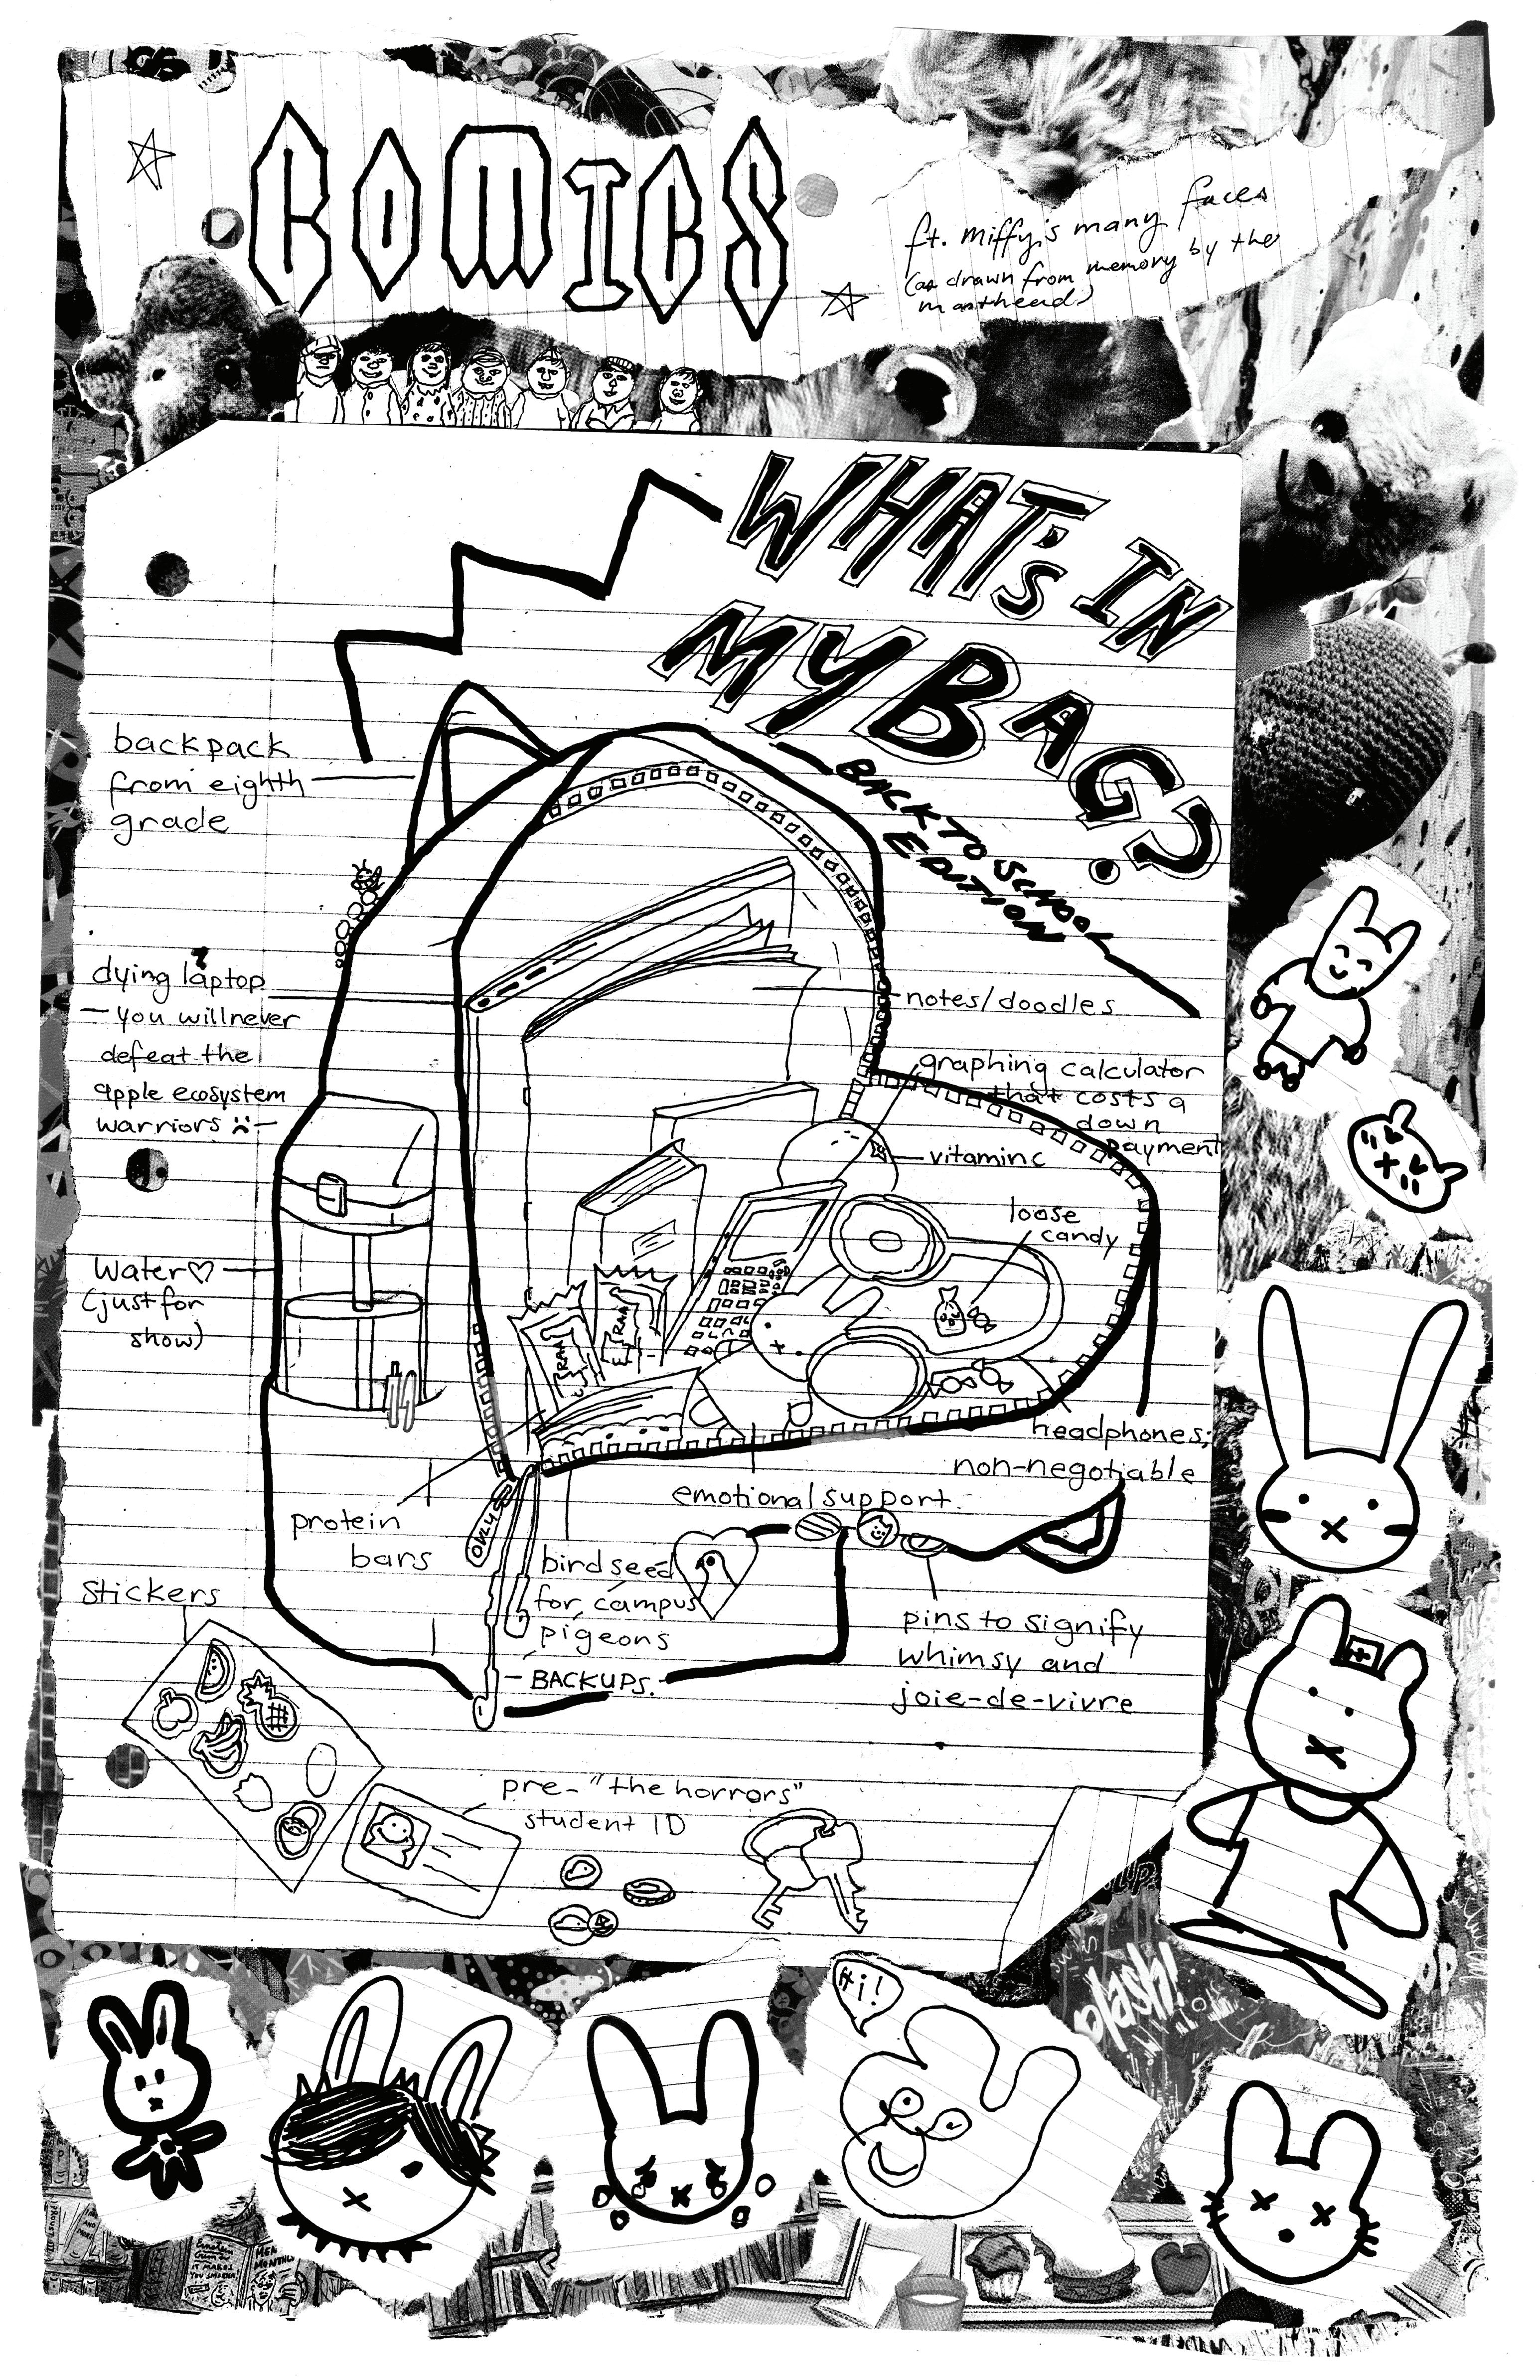 COMICS
ft. Miffy's many faces
(as drawn from memory by the
masthead)
WHAT'S IN
MY BAG?
BACK TO SCHOOL
EDITION
backpack
from eighth
grade
dying laptop
- you will never
defeat the
apple ecosystem
warriors :(
notes/doodles
graphing calculator
that costs a
down
payment
vitamin c
loose
candy
Water♡
(just for
show)
headphones;
non-negotiable
emotional support
protein
bars
bird seed
for campus
pigeons
BACKUPS.
pins to signify
whimsy and
joie-de-vivre
stickers
pre-"the horrors"
student ID
Hi!
splash!
IT MAKES
YOU SMARTER!